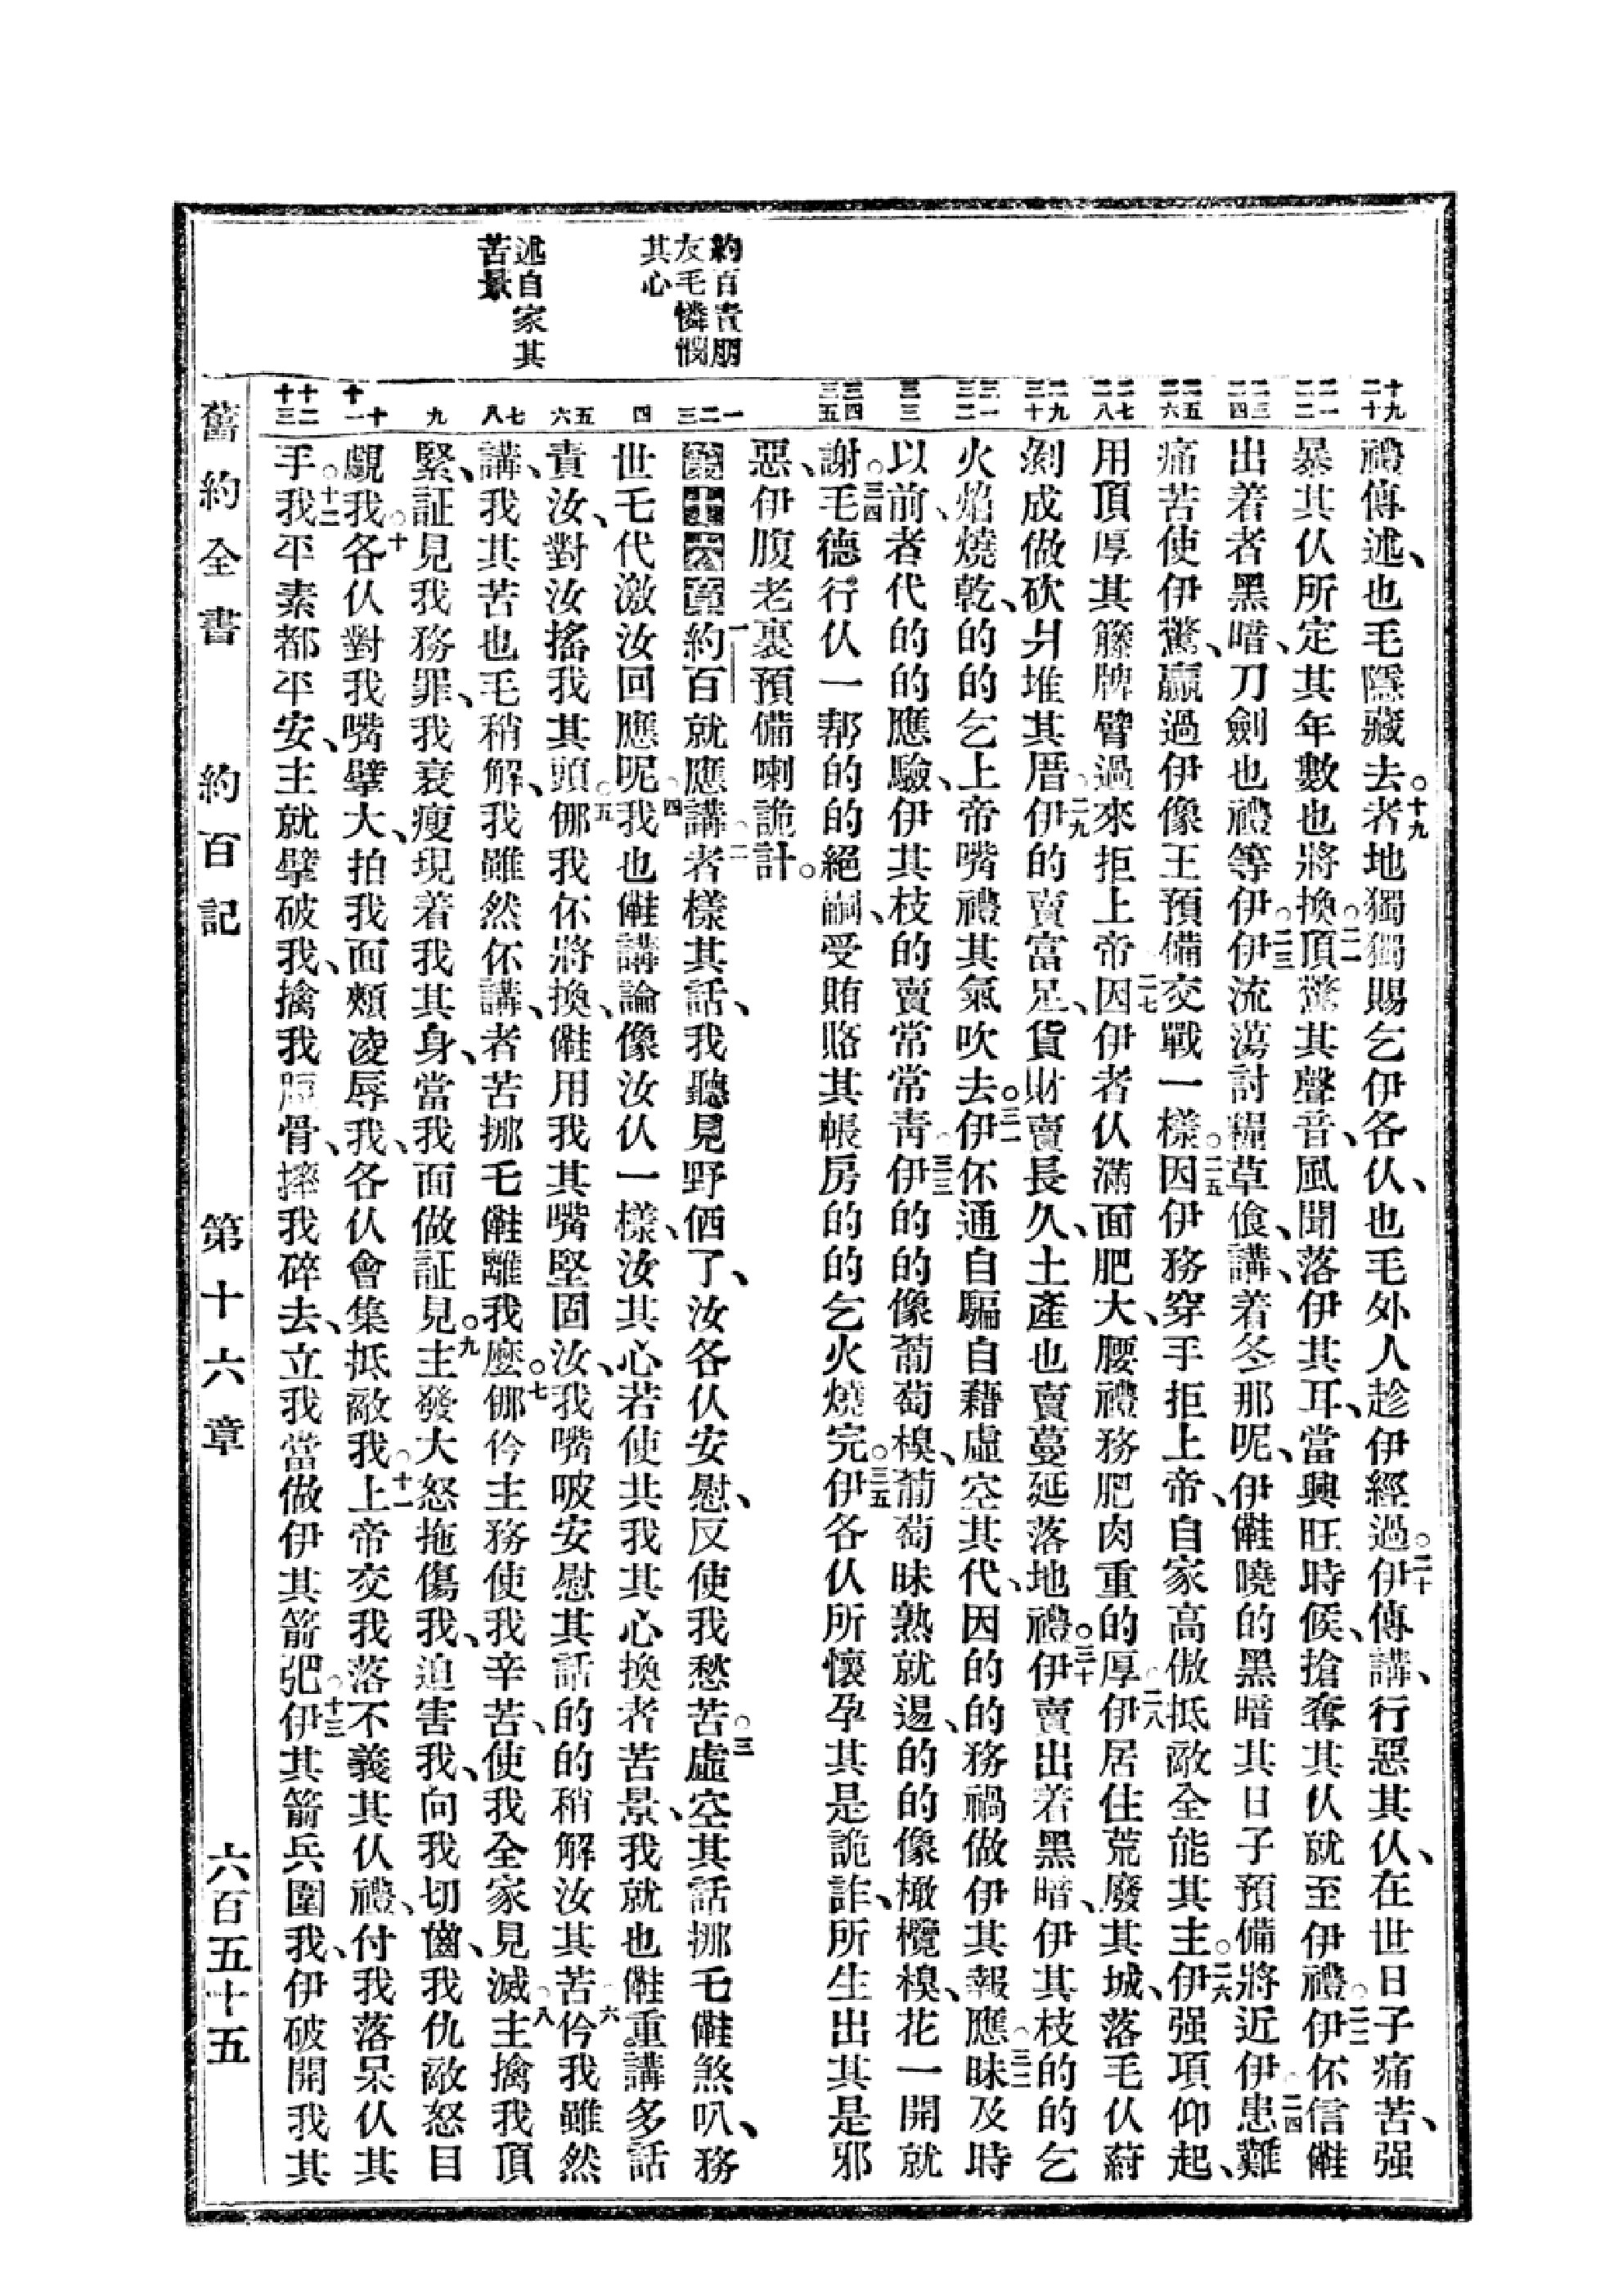 約百責朋
友毛憐憫
其心
述自家其
苦景
十九 二十
二一 二二
二三 二四
二五 二六
二七 二八
二九 三十
三一 三二
三三
三四 三五
一 二 三
四
五 六
七 八
九
十 十一
十二 十三
禮傳述、也毛隱藏去。十九者地獨獨賜乞伊各仈、也毛外人趁伊經過。二十伊傳講、行惡其仈、在世日子痛苦、强
暴其仈所定其年數也將換。二一頂驚其聲音、風聞落伊其耳、當興旺時候、搶奪其仈就至伊禮。二二伊伓信㑚
出着者黑暗、刀劍也禮等伊。二三伊流蕩討糧草飡、講、着冬那呢、伊㑚曉的黑暗其日子預備將近伊。二四患難
痛苦使伊驚、贏過伊像王預備交戰一樣。二五因伊務穿手拒上帝、自家高傲抵敵全能其主。二六伊强項仰起、
用頂厚其籐牌臂過來拒上帝。二七因伊者仈滿面肥大、腰禮務肥肉重的厚。二八伊居住荒廢其城、落毛仈蔚
剝成做砍爿堆其厝。二九伊的賣富足、貨財賣長久、土產也賣蔓延落地禮。三十伊賣出着黑暗、伊其枝的的乞
火焰燒乾、的的乞上帝嘴禮其氣吹去。三一伊伓通自騙自藉虛空其代、因的的務禍做伊其報應。三二昧及時
以前、者代的的應驗、伊其枝的賣常常靑。三三伊的的像葡萄模、葡萄昧熟就逷、的的像橄欖模、花一開就
謝。三四毛德行仈一帮的的絕嗣、受賄賂其帳房的的乞火燒完。三五伊各仈所懷孕其是詭詐、所生出其是邪
惡、伊腹老裏預備喇詭計。
第十六章一約百就應講。二者樣其話、我聽見野伵了、汝各仈安慰、反使我愁苦。三虛空其話挪毛㑚煞叭、務
世乇代激汝回應呢。四我也㑚講論像汝仈一樣、汝其心若使共我其心換者苦景、我就也㑚重講多話
責汝、對汝搖我其頭。五㑚我伓將換、㑚用我其嘴堅固汝、我嘴㗑安慰其話的的稍解汝其苦。六仱我雖然
講、我其苦也毛稍解、我雖然伓講、者苦挪毛㑚離我麼。七㑚仱主務使我辛苦、使我全家見滅。八主擒我頂
緊、証見我務罪、我衰瘦現着我其身、當我面做証見。九主發大怒拖傷我、迫害我、向我切齒、我仇敵怒目
覷我。十各仈對我嘴擘大、拍我面頰凌辱我、各仈會集抵敵我。十一上帝交我落不義其仈禮、付我落呆仈其
手。十二我平素都平安、主就擘破我、擒我脰骨、摔我碎去、立我當做伊其箭弝。十三伊其箭兵圍我、伊破開我其
舊約全書　約百記　第十六章　六百五十五